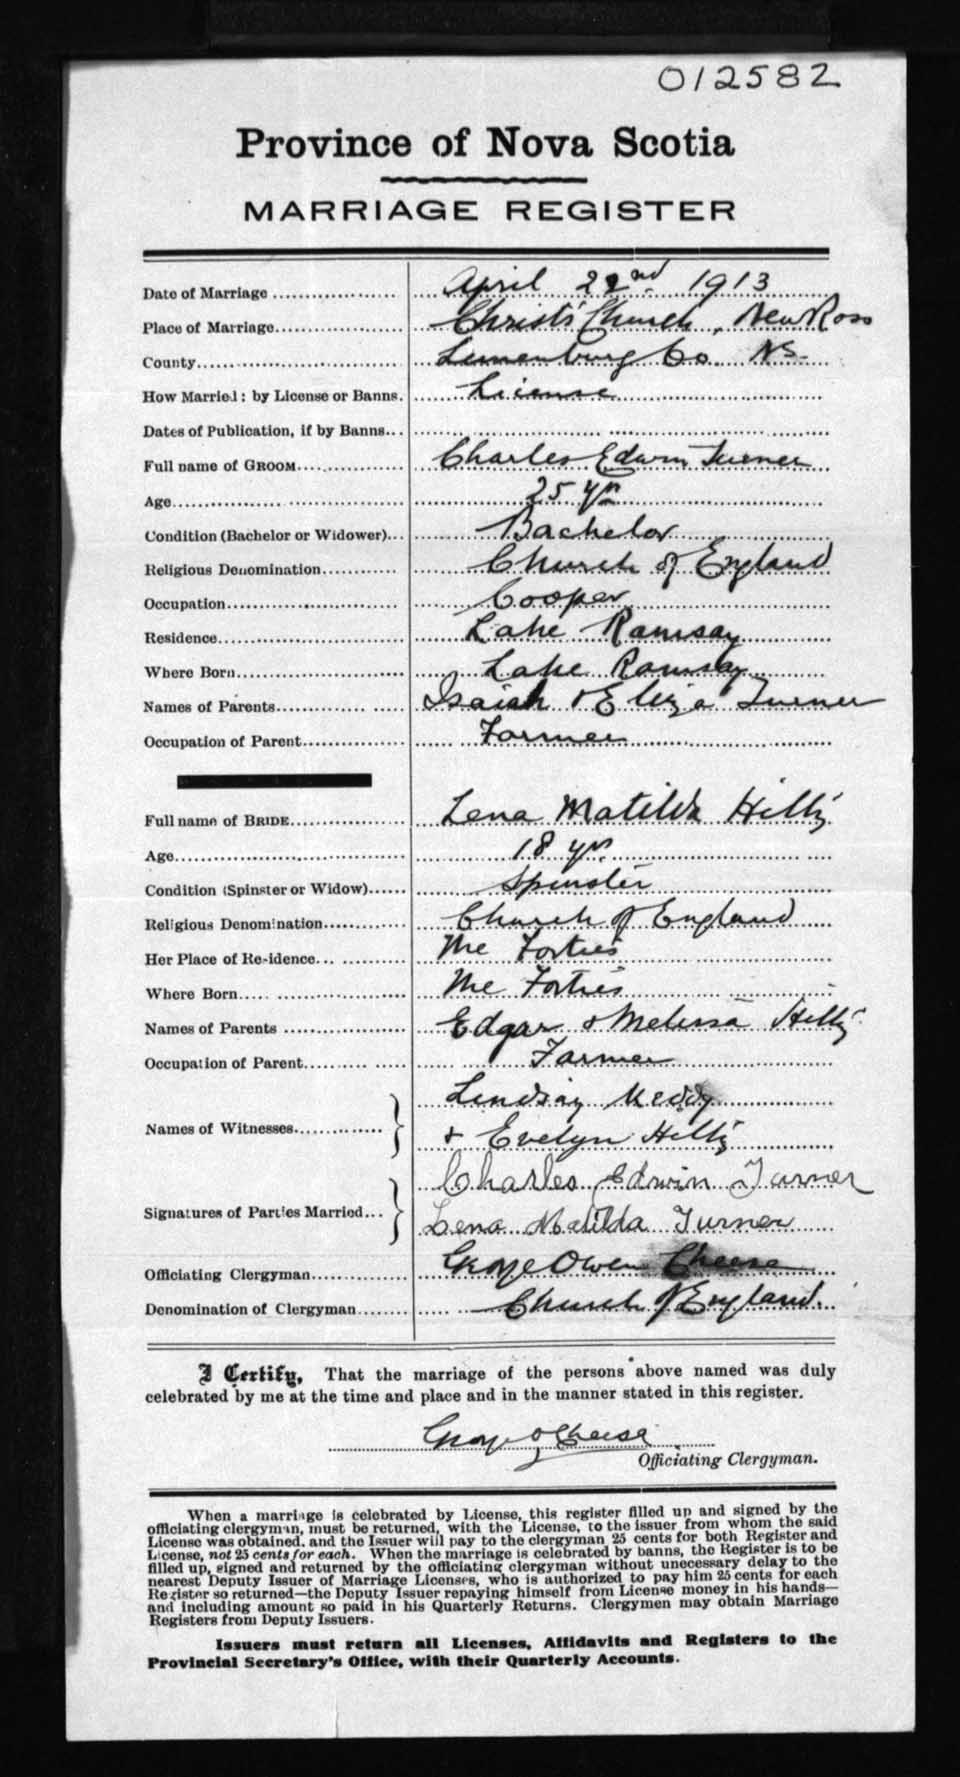 012582
Province of Nova Scotia
MARRIAGE REGISTER
Date of Marriage April 22nd 1913
Place of Marriage Christ's Church, New Ross
County Lunenburg Co NS.
How Married: by License or Banns. License
Dates of Publication, if by Banns
Full name of GROOM Charles Edwin Turner
Age 25 yrs
Condition (Bachelor or Widower) Bachelor
Religious Denomination Church of England
Occupation Cooper
Residence Lake Ramsay
Where Born Lake Ramsay
Names of Parents Isaiah & Eliza Turner
Occupation of Parent Farmer
Full name of BRIDE Lena Matilda Hiltz
Age 18 yrs
Condition (Spinster or Widow) Spinster
Religious Denomination Church of England
Her Place of Residence The Forties
Where Born The Forties
Names of Parents Edgar & Melissa Hiltz
Occupation of Parent Farmer
Names of Witnesses Lindsay Keddy
& Evelyn Hiltz
Signatures of Parties Married Charles Edwin Turner
Lena Matilda Turner
Officiating Clergyman George Owen Cheese
Denomination of Clergyman Church of England.
I Certify, That the marriage of the persons above named was duly
celebrated by me at the time and place and in the manner stated in this register.
George O Cheese
Officiating Clergyman.
When a marriage is celebrated by License, this register filled up and signed by the
officiating clergyman, must be returned, with the License, to the issuer from whom the said
License was obtained, and the Issuer will pay to the clergyman 25 cents for both Register and
License, not 25 cents for each. When the marriage is celebrated by banns, the Register is to be
filled up, signed and returned by the officiating clergyman without unecessary delay to the
nearest Deputy Issuer of Marriage Licenses, who is authorized to pay him 25 cents for each
Register so returned—the Deputy Issuer repaying himself from License money in his hands—
and including amount so paid in his Quarterly Returns. Clergymen may obtain Marriage
Registers from Deputy Issuers.
Issuers must return all Licenses, Affidavits and Registers to the
Provincial Secretary's Office, with their Quarterly Accounts.